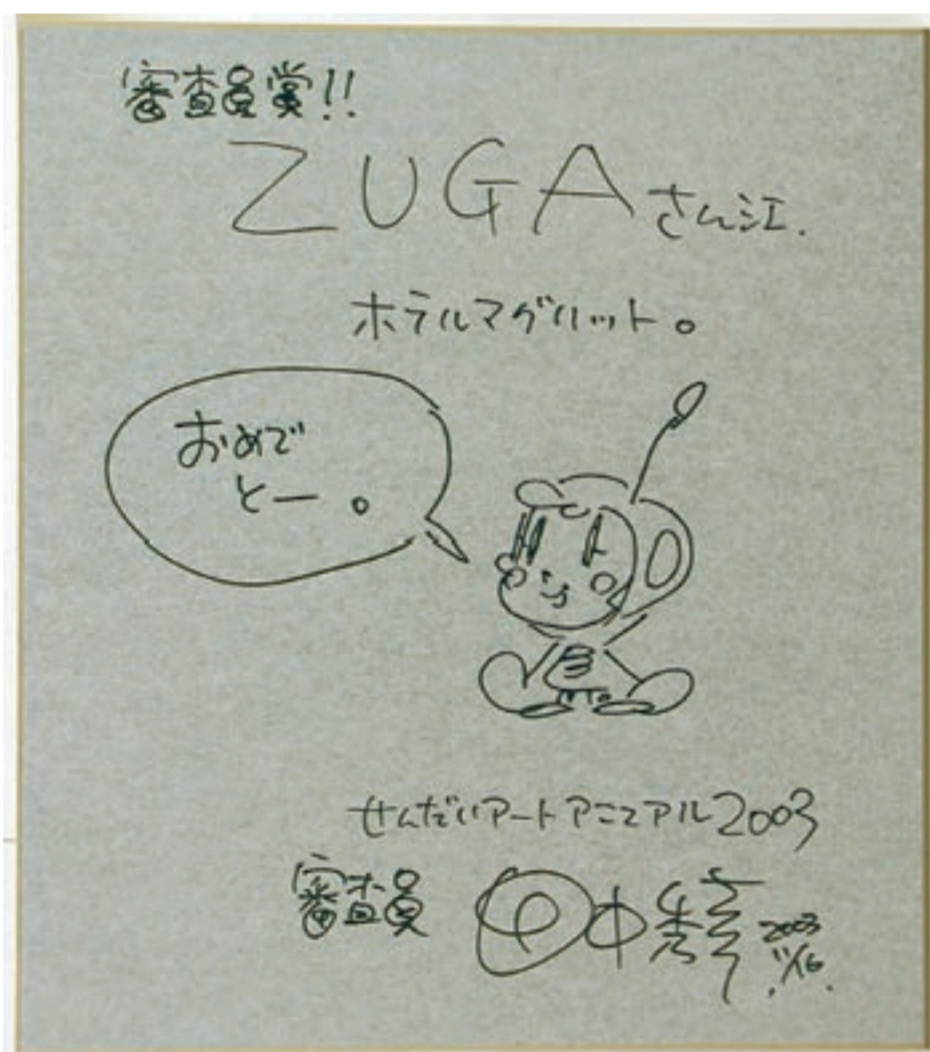 審査員賞!!
ZUGAさん江.
ホテルマグリット。
おめで
とー。
せんだいアートアニュアル2003
審査員 田中秀幸 2003
11/16.